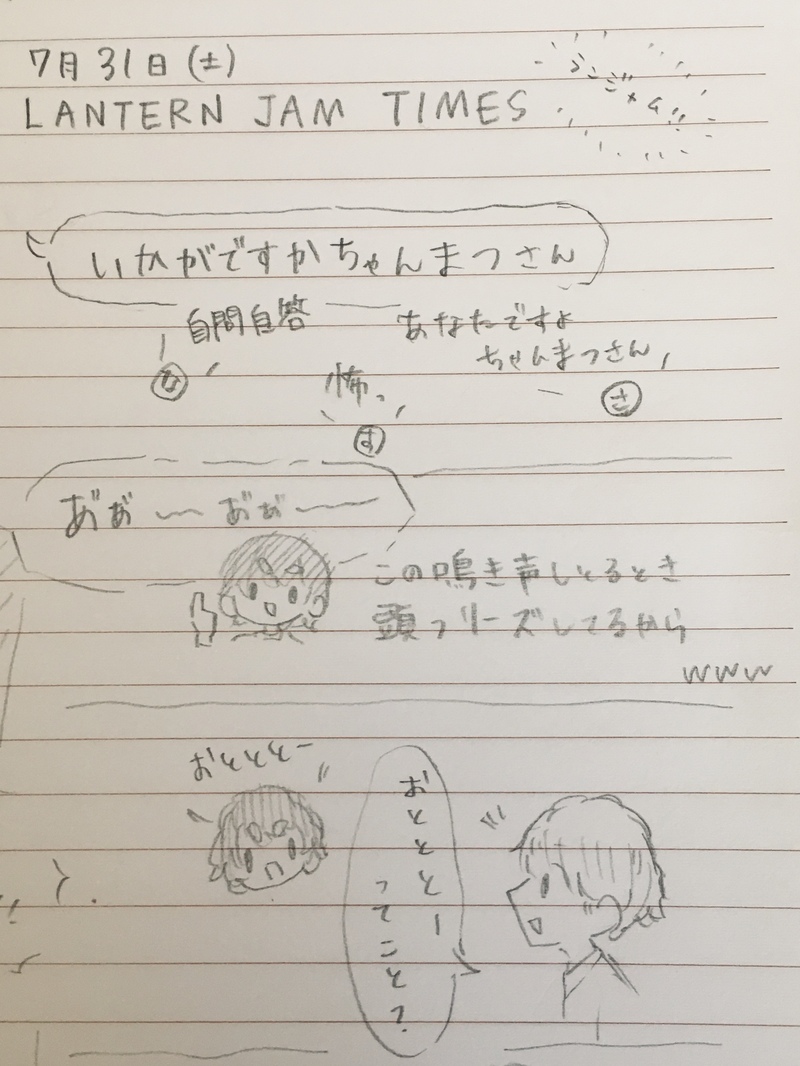 7月31日(土)
LANTERN JAM TIMES
いかがですかちゃんまつさん
自問自答
な
怖っ
す
あなたですよ
ちゃんまつさん
さ
あ゛あ゛〜あ゛あ゛ー
この鳴き声しとるとき
頭フリーズしてるから
www
おととと〜
おととと〜
ってこと？